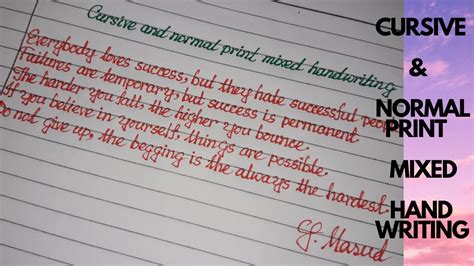 Cursive and normal print mixed handwriting
Everybody loves success, but they hate successful peop
Failures are temporary, but success is permanent.
The harder you fall, the higher you bounce.
If you believe in yourself things are possible.
Do not give up, the begging is the always the hardest.
Masud
CURSIVE
&
NORMAL
PRINT
MIXED
HAND
WRITING